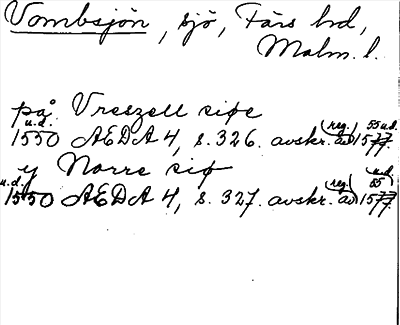 Vombsjön, sjö, Färs hd,
Malm. l.
på Vreszell siøe
u.d. (reg.) 55 u.d.
1550 AEDA 4, s. 326. avskr. av 1577.
y Norre siø
u.d. (reg.) u.d. 55
1550 AEDA 4, s. 327. avskr. av 1577.